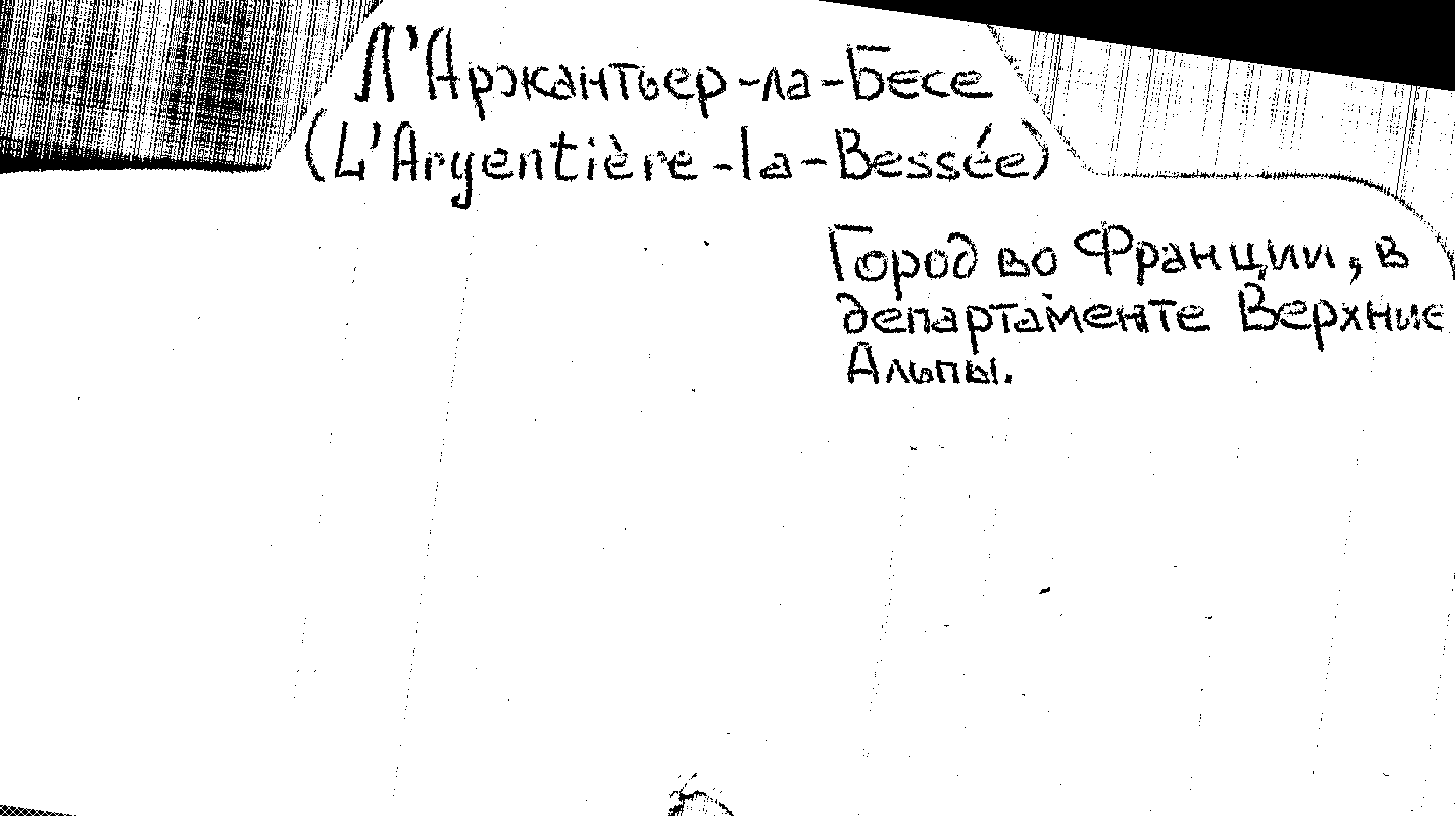 Л'Аржантьер-ла-Бесе
(L'Argentière-la-Bessée)
Город во Франции, в
департаменте Верхние
Альпы.